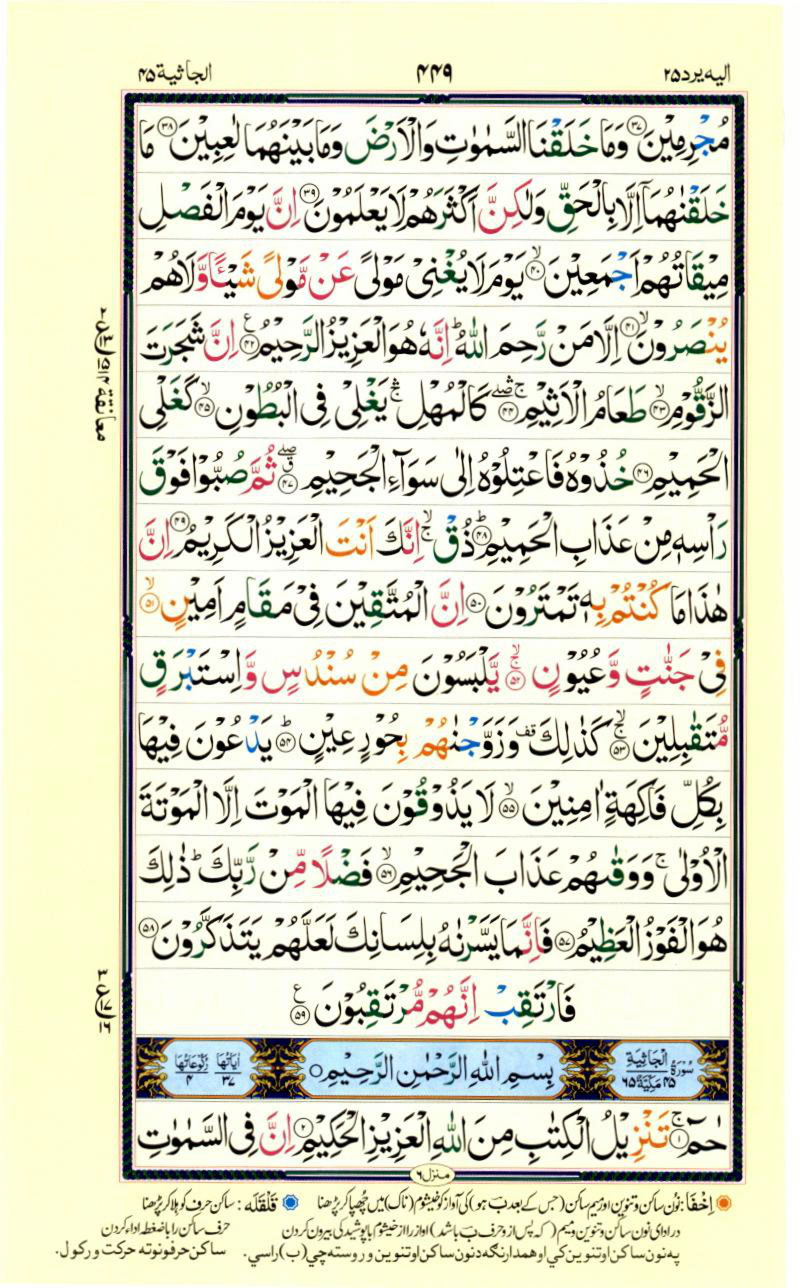 اليه يرد ٢٥ ٤٤٩ الجاثية ٤٥
مُجْرِمِيْنَ ﴿٣٧﴾ وَمَا خَلَقْنَا السَّمٰوٰتِ وَالْاَرْضَ وَمَا بَيْنَهُمَا لٰعِبِيْنَ ﴿٣٨﴾ مَا
خَلَقْنٰهُمَاۤ اِلَّا بِالْحَقِّ وَلٰكِنَّ اَكْثَرَهُمْ لَا يَعْلَمُوْنَ ﴿٣٩﴾ اِنَّ يَوْمَ الْفَصْلِ
مِيْقَاتُهُمْ اَجْمَعِيْنَ ﴿٤٠﴾ۙ يَوْمَ لَا يُغْنِيْ مَوْلًى عَنْ مَّوْلًى شَيْـًٔا وَّلَا هُمْ
يُنْصَرُوْنَ ﴿٤١﴾ۙ اِلَّا مَنْ رَّحِمَ اللّٰهُ ؕ اِنَّهٗ هُوَ الْعَزِيْزُ الرَّحِيْمُ ﴿٤٢﴾ع اِنَّ شَجَرَتَ
الزَّقُّوْمِ ﴿٤٣﴾ۙ طَعَامُ الْاَثِيْمِ ﴿٤٤﴾ۛۖۚ كَالْمُهْلِ ۛۚ يَغْلِيْ فِي الْبُطُوْنِ ﴿٤٥﴾ۙ كَغَلْيِ
الْحَمِيْمِ ﴿٤٦﴾ خُذُوْهُ فَاعْتِلُوْهُ اِلٰى سَوَآءِ الْجَحِيْمِ ﴿٤٧﴾ۖق ثُمَّ صُبُّوْا فَوْقَ
رَاْسِهٖ مِنْ عَذَابِ الْحَمِيْمِ ﴿٤٨﴾ؕ ذُقْ ۙۚ اِنَّكَ اَنْتَ الْعَزِيْزُ الْكَرِيْمُ ﴿٤٩﴾ اِنَّ
هٰذَا مَا كُنْتُمْ بِهٖ تَمْتَرُوْنَ ﴿٥٠﴾ اِنَّ الْمُتَّقِيْنَ فِيْ مَقَامٍ اَمِيْنٍ ﴿٥١﴾ۙ
فِيْ جَنّٰتٍ وَّعُيُوْنٍ ﴿٥٢﴾ۚۙ يَّلْبَسُوْنَ مِنْ سُنْدُسٍ وَّاِسْتَبْرَقٍ
مُّتَقٰبِلِيْنَ ﴿٥٣﴾ۚۙ كَذٰلِكَ قف وَزَوَّجْنٰهُمْ بِحُوْرٍ عِيْنٍ ﴿٥٤﴾ؕ يَدْعُوْنَ فِيْهَا
بِكُلِّ فَاكِهَةٍ اٰمِنِيْنَ ﴿٥٥﴾ۙ لَا يَذُوْقُوْنَ فِيْهَا الْمَوْتَ اِلَّا الْمَوْتَةَ
الْاُوْلٰى ۚ وَوَقٰىهُمْ عَذَابَ الْجَحِيْمِ ﴿٥٦﴾ۙ فَضْلًا مِّنْ رَّبِّكَ ؕ ذٰلِكَ
هُوَ الْفَوْزُ الْعَظِيْمُ ﴿٥٧﴾ فَاِنَّمَا يَسَّرْنٰهُ بِلِسَانِكَ لَعَلَّهُمْ يَتَذَكَّرُوْنَ ﴿٥٨﴾
فَارْتَقِبْ اِنَّهُمْ مُّرْتَقِبُوْنَ ﴿٥٩﴾ع
سُوْرَةُ الْجَاثِيَةِ ٤٥ مَكِّيَّةٌ ٦٥ بِسْمِ اللّٰهِ الرَّحْمٰنِ الرَّحِيْمِ ○ اٰيَاتُهَا ٣٧ رُكُوْعَاتُهَا ٤
حٰمٓ ﴿١﴾ۚ تَنْزِيْلُ الْكِتٰبِ مِنَ اللّٰهِ الْعَزِيْزِ الْحَكِيْمِ ﴿٢﴾ اِنَّ فِي السَّمٰوٰتِ
منزل ٦
اِخْفَا: نون ساکن و تنوین اور میم ساکن (جس کے بعد ب ہو) کی آواز کو خیشوم (ناک) میں چھپا کر پڑھنا قَلْقَلَه: ساکن حرف کو ہلا کر پڑھنا
در ادای نون ساکن و تنوین و میم (که پس از و حرف ب باشد) آواز را از خیشوم با پوشیدگی بیرون کردن حرف ساکن را با ضغطه ادا کردن
په نون ساکن او تنوین کي او همدارنګه د نون ساکن او تنوین و روسته چي (ب) راسي. ساکن حرفونو ته حرکت ورکول.